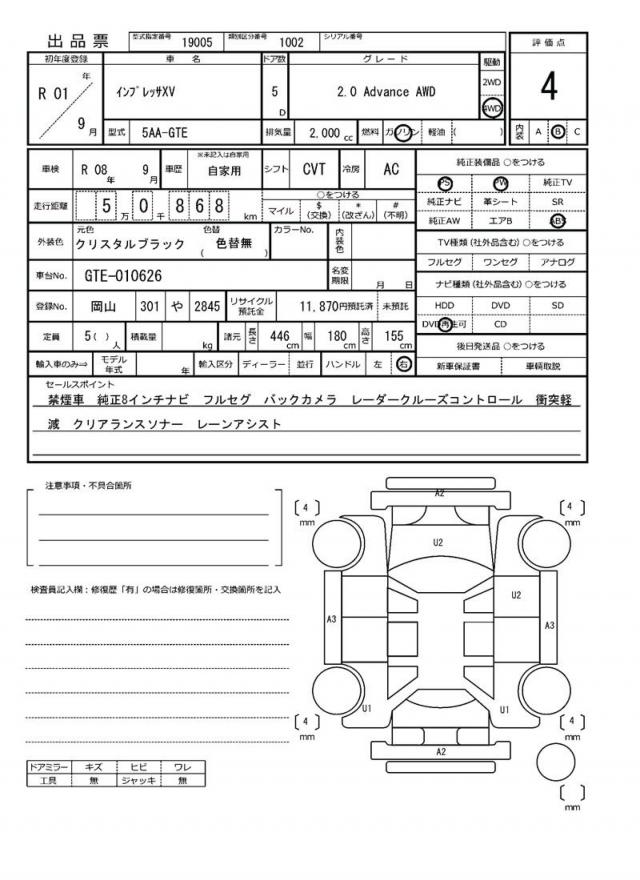 出品票 型式指定番号 19005 類別区分番号 1002 シリアル番号
初年度登録 車名 ドア数 グレード 駆動 評価点
R 01 年 9 月 ｲﾝﾌﾟﾚｯｻXV 5 D 2.0 Advance AWD 2WD 4WD 4
型式 5AA-GTE 排気量 2,000 cc 燃料 ガソリン 軽油 ( ) 内装 A B C
車検 R 08 年 9 月 車歴 ※未記入は自家用 自家用 シフト CVT 冷房 AC
走行距離 5 万 0 千 8 6 8 km ○をつける マイル $ (交換) * (改ざん) # (不明)
外装色 元色 クリスタルブラック 色替 ( 色替無 ) カラーNo. 内装色
車台No. GTE-010626 名変期限 月 日
登録No. 岡山 301 や 2845 リサイクル預託金 11,870円預託済 未預託
定員 5( ) 人 積載量 kg 諸元 長さ 446 cm 幅 180 cm 高さ 155 cm
輸入車のみ⇒ モデル年式 年 輸入区分 ディーラー 並行 ハンドル 左 右
純正装備品 ○をつける
PS PW 純正TV
純正ナビ 革シート SR
純正AW エアB ABS
TV種類 (社外品含む) ○をつける
フルセグ ワンセグ アナログ
ナビ種類 (社外品含む) ○をつける
HDD DVD SD
DVD再生可 CD
後日発送品 ○をつける
新車保証書 車輌取説
セールスポイント
禁煙車 純正8インチナビ フルセグ バックカメラ レーダークルーズコントロール 衝突軽
減 クリアランスソナー レーンアシスト
注意事項・不具合箇所
検査員記入欄：修復歴「有」の場合は修復箇所・交換箇所を記入
ドアミラー キズ ヒビ ワレ
工具 無 ジャッキ 無
A2
4 mm
4 mm
U2
U2
A3
A3
U1
U1
4 mm
4 mm
A2
mm